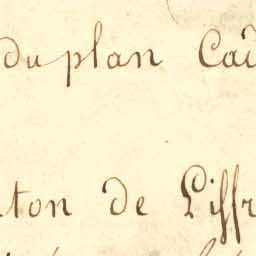 du plan Cad
ton de Liffr